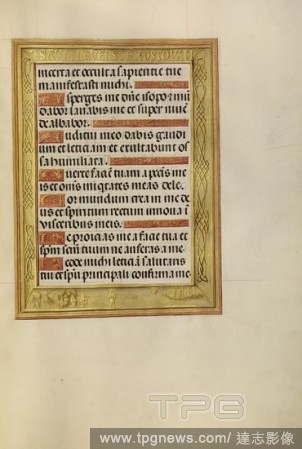 incerta et occulta sapientie tue
manifestasti michi.
Asperges me dñe isopo et mũ
dabor lavabis me et super nivẽ
dealbabor.
Auditui meo dabis gaudi
um et leticiam et exultabunt os
sa humiliata.
Averte faciẽ tuam a pctis me
is et oms iniqtates meas dele.
Cor mundum crea in me de
us et spiritum rectum innova ĩ
visceribus meis.
Ne proicias me a facie tua et
spm sctm tuum ne auferas a me
Redde michi leticiã salutaris
tui et spũ principali confirma me
TPG
www.tpgnews.com/影像 | 達志影像